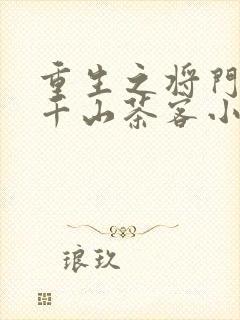 重生之将門
千山茶客小
琅玖